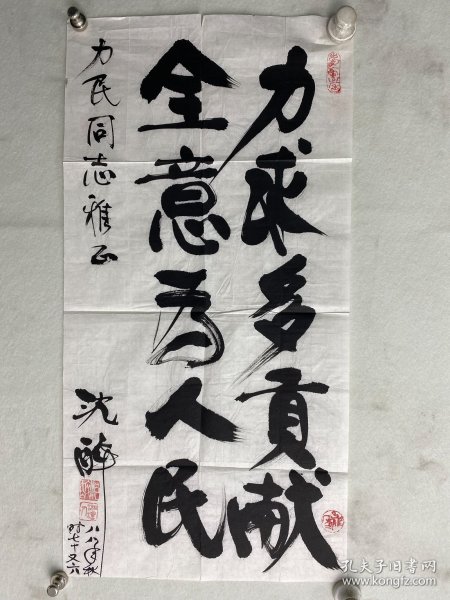 力求多贡献
全意为人民
力民同志雅正
沈醉
八八年秋
时七十又六
孔夫子旧书网